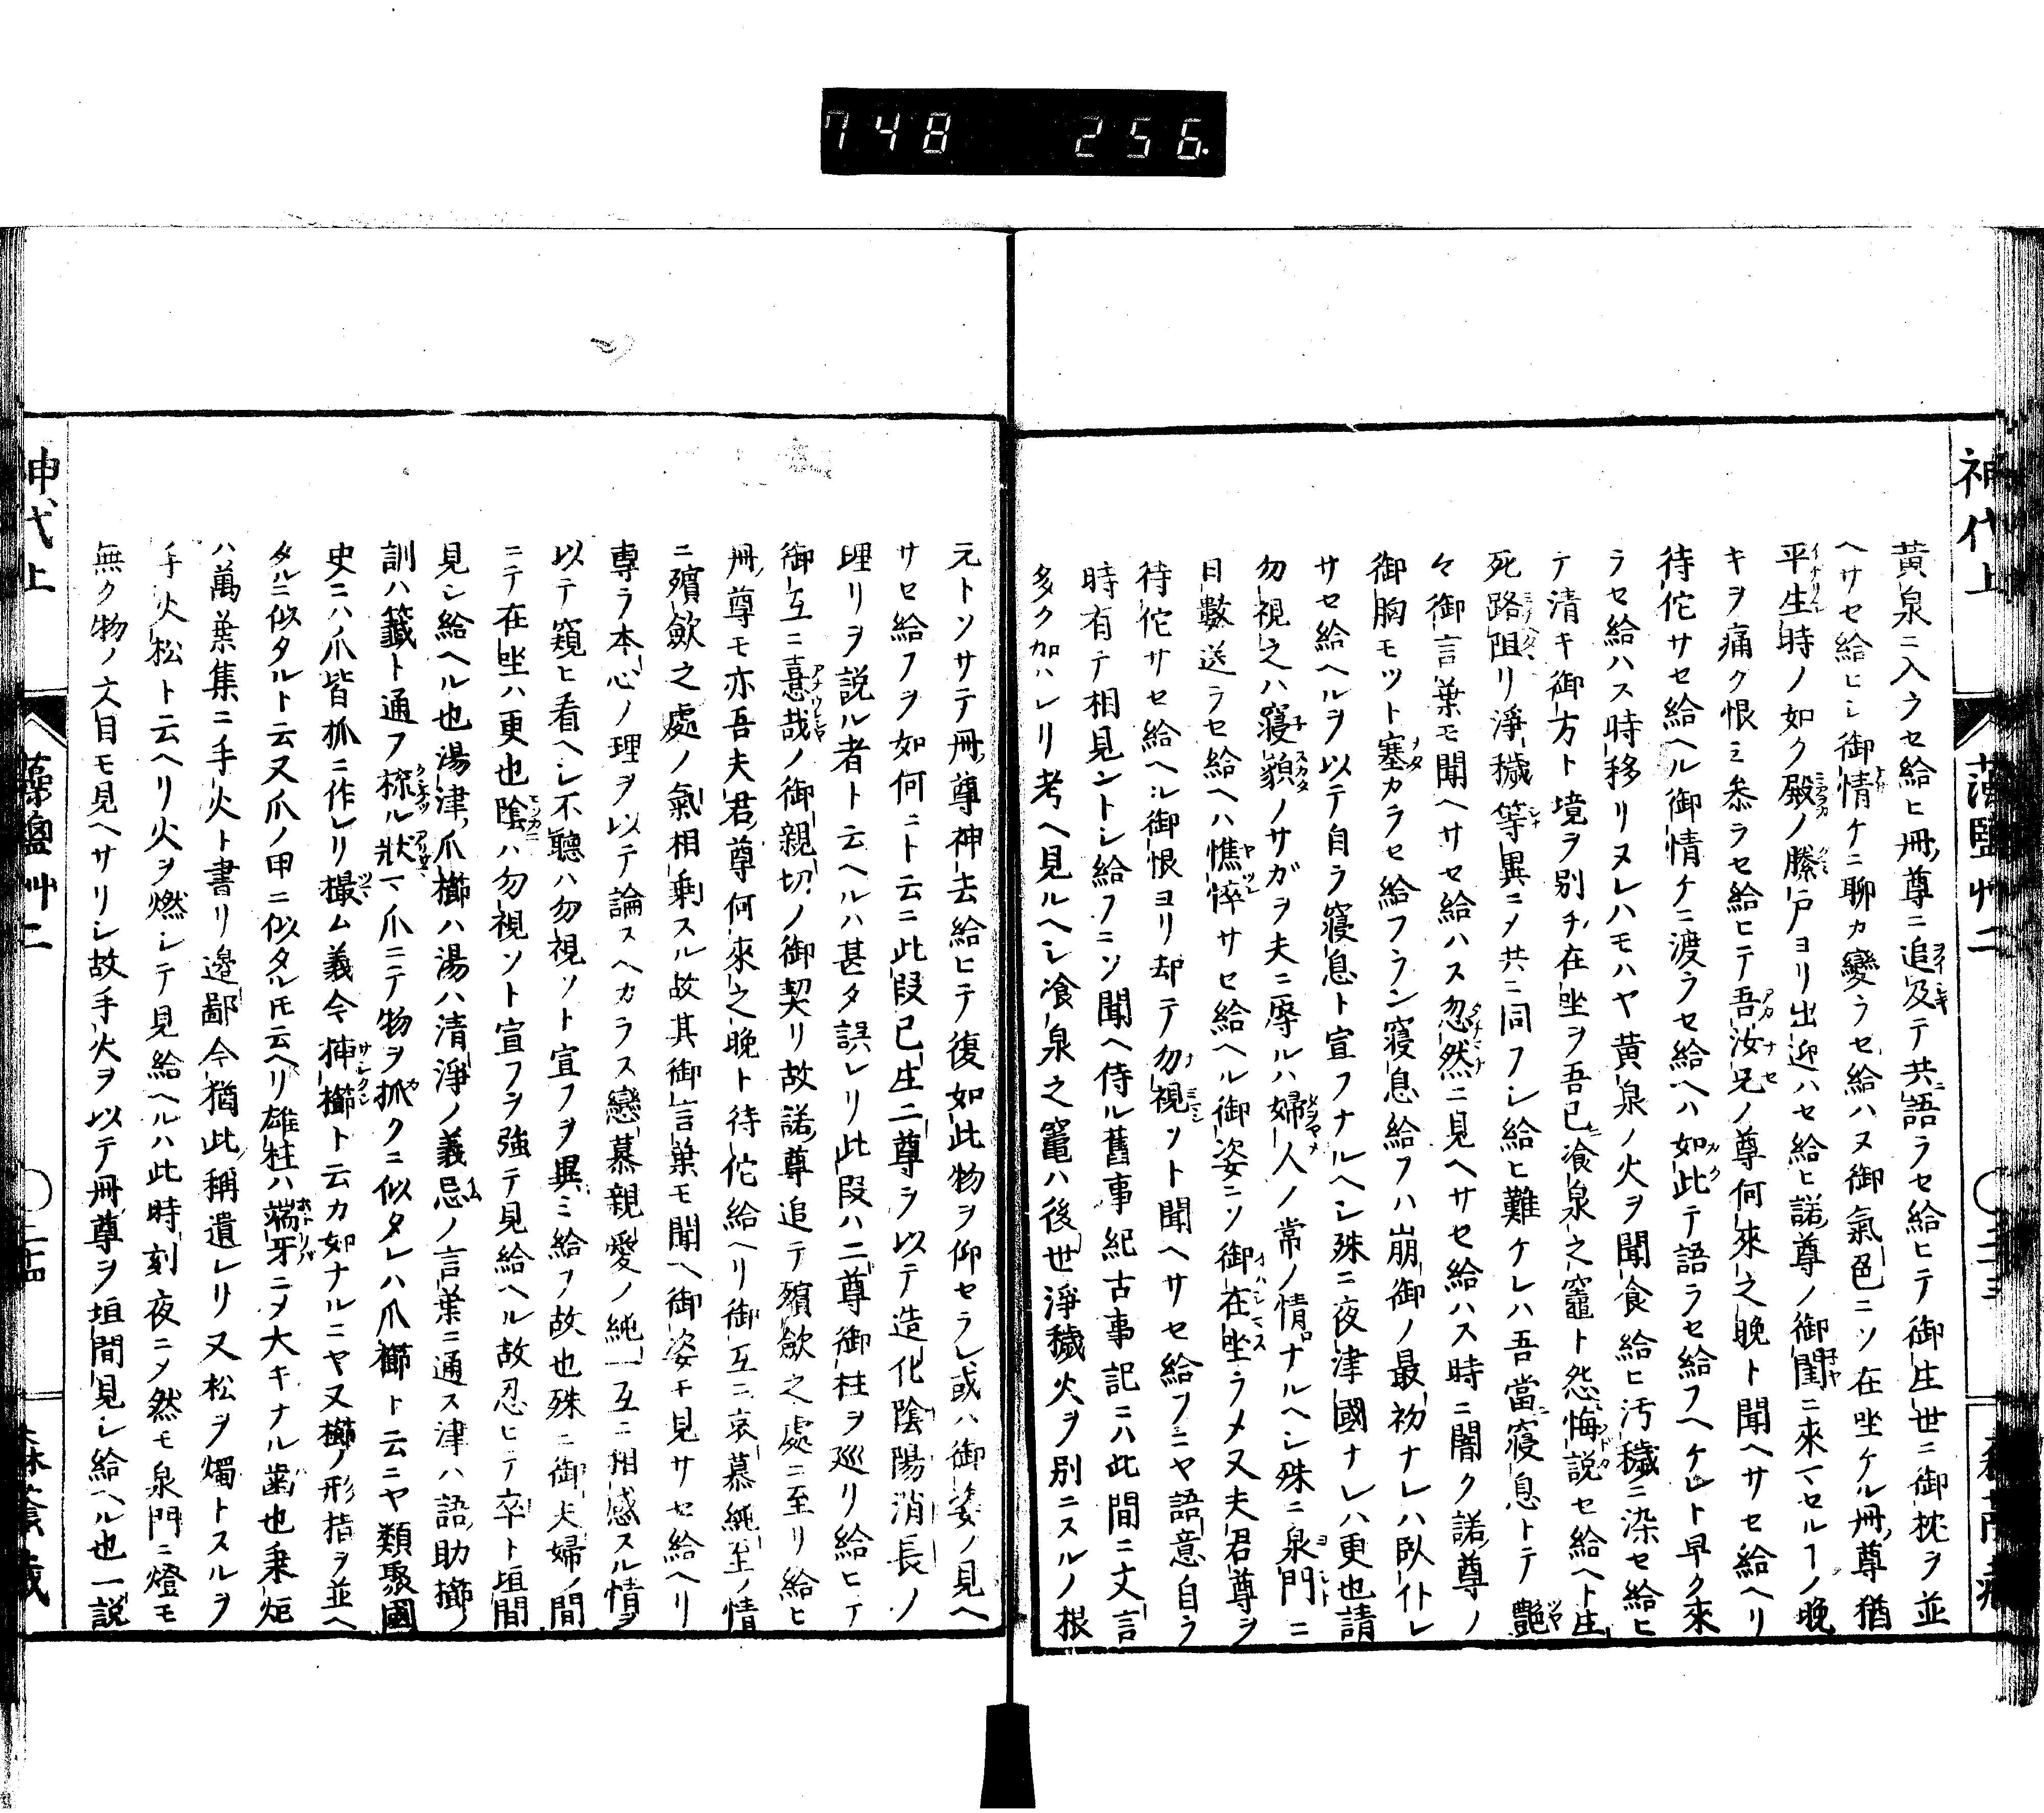 748 256.
神代上 藻鹽艸二 〇二十三
黄泉ニ入ラセ給ヒ冊尊ニ追及テ共ニ語ラセ給ヒテ御在世ニ御枕ヲ並
ヘサセ給ヒシ御情ケニ聊カ變ラセ給ハヌ御氣色ニソ在坐ケル冊尊猶
平生時ノ如ク殿ノ縢戸ヨリ出迎ハセ給ヒ諾尊ノ御閨ニ來マセルヿノ晩
キヲ痛ク恨ミ参ラセ給ヒテ吾汝兄ノ尊何來之晩ト聞ヘサセ給ヘリ
待佗サセ給ヘル御情ケニ渡ラセ給ヘハ如此テ語ラセ給フヘケレト早ク來
ラセ給ハス時移リヌレハモハヤ黄泉ノ火ヲ聞食給ヒ汚穢ニ染セ給ヒ
テ清キ御方ト境ヲ別チ在坐ヲ吾已ニ飡泉之竈ト怨悔説セ給ヘト生
死路阻リ淨穢等異ニメ共ニ同フシ給ヒ難ケレハ吾當寝息トテ艶
々御言葉モ聞ヘサセ給ハス忽然ニ見ヘサセ給ハス時ニ闇ク諾尊ノ
御胸モツト塞カラセ給フラン寝息給フハ崩御ノ最初ナレハ臥仆レ
サセ給ヘルヲ以テ自ラ寝息ト宣フナルヘシ殊ニ夜津國ナレハ更也請
勿視之ハ寝貌ノサガヲ夫ニ辱ルハ婦人ノ常ノ情ナルヘシ殊ニ泉門ニ
日數送ラセ給ヘハ憔悴サセ給ヘル御姿ニソ御在坐ラメ又夫君尊ヲ
待佗サセ給ヘル御恨ヨリ却テ勿視ソト聞ヘサセ給フニヤ語意自ラ
時有テ相見ントシ給フニソ聞ヘ侍ル舊事紀古事記ニハ此間ニ文言
多ク加ハレリ考ヘ見ルヘシ飡泉之竈ハ後世淨穢火ヲ別ニスルノ根
元トソサテ冊尊神去給ヒテ復如此物ヲ仰セラレ或ハ御姿ノ見ヘ
サセ給フヲ如何ニト云ニ此段已生二尊ヲ以テ造化陰陽消長ノ
理リヲ説ル者ト云ヘルハ甚タ誤レリ此段ハ二尊御柱ヲ巡リ給ヒテ
御互ニ憙哉ノ御親切ノ御契リ故諾尊追テ殯歛之處ニ至リ給ヒ
冊尊モ亦吾夫君尊何來之晩ト待佗給ヘリ御互ニ哀慕純至ノ情
ニ殯歛之處ノ氣相剰スル故其御言葉モ聞ヘ御姿モ見サセ給ヘリ
専ラ本心ノ理ヲ以テ論スヘカラス戀慕親愛ノ純一互ニ相感スル情ヲ
以テ窺ヒ看ヘシ不聽ハ勿視ソト宣フヲ異ミ給フ故也殊ニ御夫婦ノ間
ニテ在坐ハ更也陰ハ勿視ソト宣フヲ強テ見給ヘル故忍ヒテ卒ト垣間
見シ給ヘル也湯津爪櫛ハ湯ハ清淨ノ義忌ノ言葉ニ通ス津ハ語助櫛ノ
訓ハ籤ト通フ梳ル狀マ爪ニテ物ヲ抓クニ似タレハ爪櫛ト云ニヤ類聚國
史ニハノ爪皆抓ニ作レリ撮ム義今挿櫛ト云カ如ナルニヤ又櫛ノ形指ヲ並ヘ
タルニ似タルト云又爪ノ甲ニ似タル圧云ヘリ雄柱ハ端牙ニメ大キナル歯也秉炬
ハ萬葉集ニ手火ト書リ邊鄙今猶此稱遺レリ又松ヲ燭トスルヲ
手火松ト云ヘリ火ヲ燃シテ見給ヘルハ此時刻夜ニメ然モ泉門ニ燈モ
無ク物ノ文目モ見ヘサリシ故手火ヲ以テ冊尊ヲ垣間見シ給ヘル也一説
神代上 藻鹽艸二 〇二十四